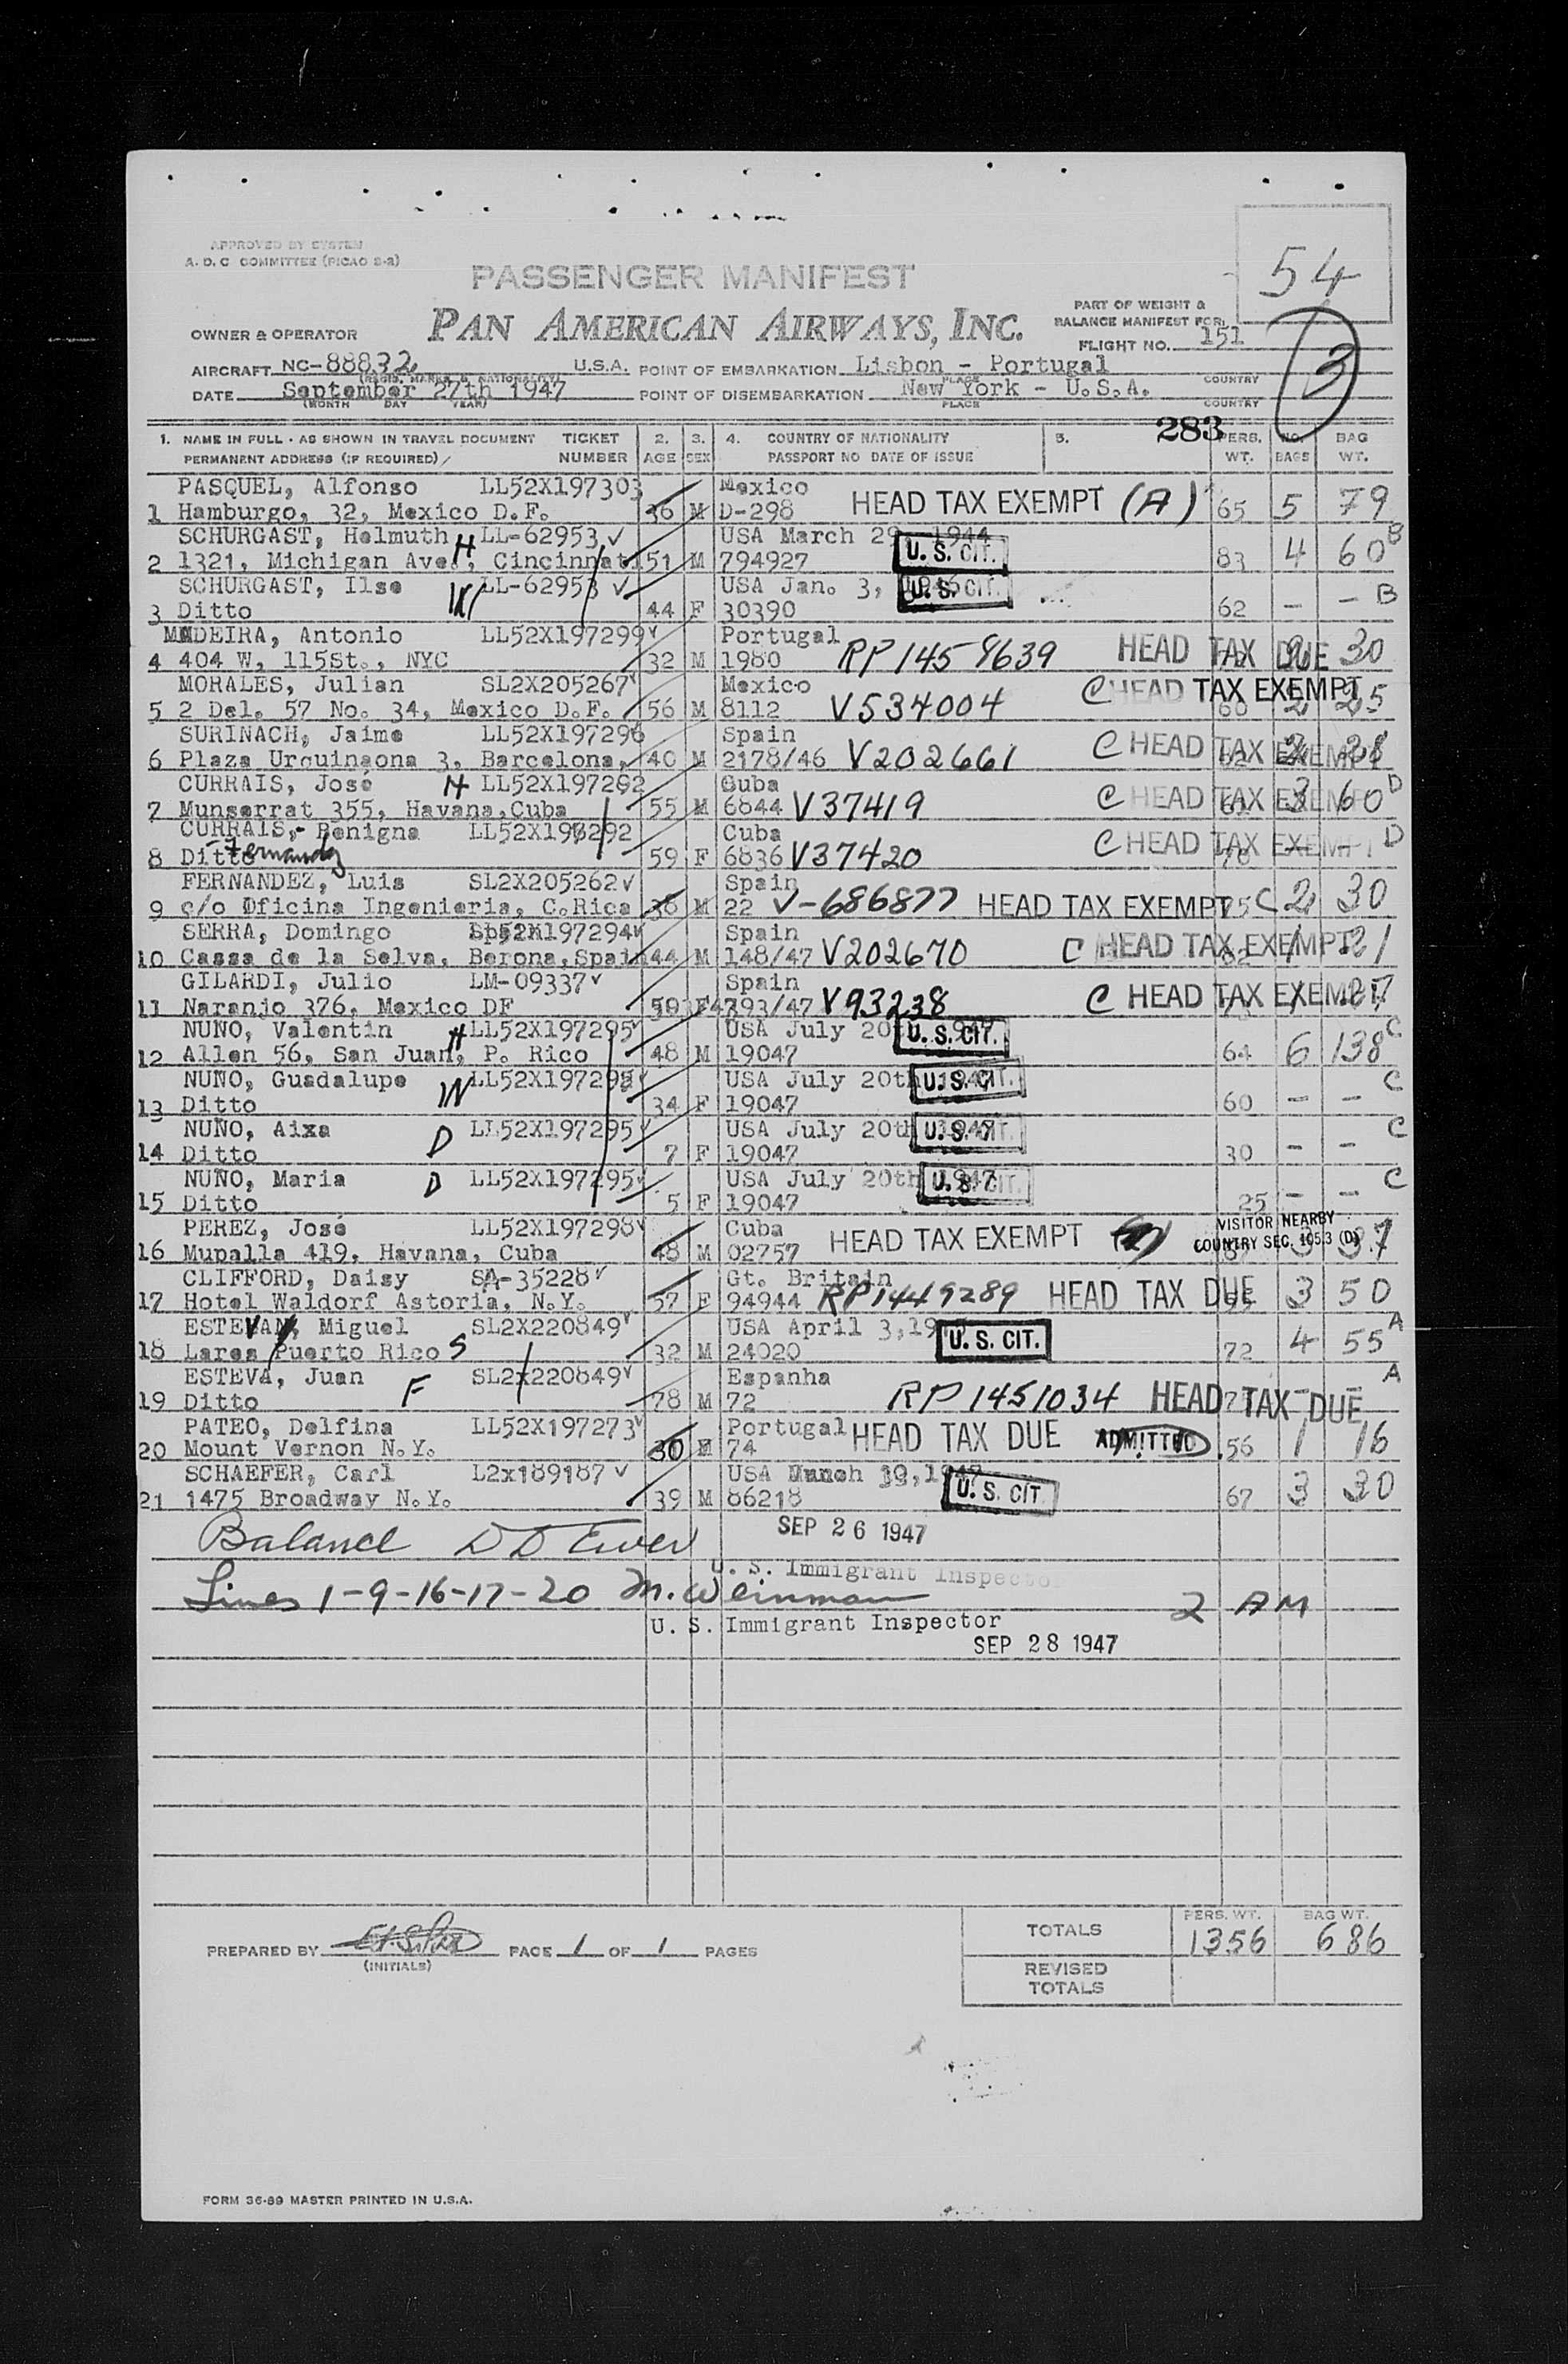 APPROVED BY SYSTEM
A. D. C COMMITTEE (PICAO 2-2)
54
PASSENGER MANIFEST
PART OF WEIGHT &
BALANCE MANIFEST FOR:
OWNER & OPERATOR PAN AMERICAN AIRWAYS, INC. FLIGHT NO. 151
3
AIRCRAFT NC-88832 U.S.A. POINT OF EMBARKATION Lisbon - Portugal
(REGIS. MARKS & NATIONALITY) PLACE COUNTRY
DATE September 27th 1947 POINT OF DISEMBARKATION New York - U.S.A.
(MONTH DAY YEAR) PLACE COUNTRY
283
1. NAME IN FULL - AS SHOWN IN TRAVEL DOCUMENT TICKET 2. 3. 4. COUNTRY OF NATIONALITY 5. PERS. NO. BAG
PERMANENT ADDRESS (IF REQUIRED) NUMBER AGE SEX PASSPORT NO DATE OF ISSUE WT. BAGS WT.
PASQUEL, Alfonso LL52X197303 Mexico
1 Hamburgo, 32, Mexico D.F. 36 M D-298 HEAD TAX EXEMPT (A) 65 5 79
SCHURGAST, Helmuth H LL-62953 USA March 29, 1944 B
2 1321, Michigan Ave., Cincinnati 51 M 794927 U. S. CIT. 83 4 60
SCHURGAST, Ilse W LL-62953 USA Jan. 3, U. S. CIT. B
3 Ditto 44 F 30390 62 — —
MADEIRA, Antonio LL52X197299 Portugal
4 404 W, 115St., NYC 32 M 1980 RP1458639 HEAD TAX DUE 30
MORALES, Julian SL2X205267 Mexico
5 2 Del. 57 No. 34, Mexico D.F. 56 M 8112 V534004 C HEAD TAX EXEMPT 60 2 25
SURINACH, Jaime LL52X197296 Spain
6 Plaza Urquinaona 3, Barcelona, 40 M 2178/46 V202661 C HEAD TAX EXEMPT
CURRAIS, José H LL52X197292 Cuba D
7 Munserrat 355, Havana,Cuba 55 M 6844 V37419 C HEAD TAX EXEMPT 3 60
CURRAIS, Benigna LL52X197292 Cuba D
8 Ditto 59 F 6836 V37420 C HEAD TAX EXEMPT
FERNANDEZ, Luis SL2X205262 Spain
9 c/o Oficina Ingenieria, C.Rica 36 M 22 V-686877 HEAD TAX EXEMPT C 2 30
SERRA, Domingo 197294 Spain
10 Cassa de la Selva, Berona,Spain 44 M 148/47 V202670 C HEAD TAX EXEMPT
GILARDI, Julio LM-09337 Spain
11 Naranjo 376, Mexico DF 793/47 V93238 C HEAD TAX EXEMPT
NUÑO, Valentin H LL52X197295 USA July 20th U. S. CIT. C
12 Allen 56, San Juan, P. Rico 48 M 19047 64 6 138
NUÑO, Guadalupe W LL52X197295 USA July 20th U. S. CIT. C
13 Ditto 34 F 19047 60 — —
NUÑO, Aixa D LL52X197295 USA July 20th 1947 U. S. CIT. C
14 Ditto 7 F 19047 30 — —
NUÑO, Maria D LL52X197295 USA July 20th 1947 U. S. CIT. C
15 Ditto 5 F 19047 25 — —
PEREZ, José LL52X197298 Cuba VISITOR NEARBY
16 Mupalla 419, Havana, Cuba 48 M 02757 HEAD TAX EXEMPT COUNTRY SEC. 105.3 (D) 3 37
CLIFFORD, Daisy SA-35228 Gt. Britain
17 Hotel Waldorf Astoria, N.Y. 57 F 94944 RP1449289 HEAD TAX DUE 3 50
ESTEVA, Miguel SL2X220849 USA April 3,19 U. S. CIT. A
18 Lares Puerto Rico S 32 M 24020 72 4 55
ESTEVA, Juan F SL2x220849 Espanha A
19 Ditto 78 M 72 RP1451034 HEAD TAX DUE
PATEO, Delfina LL52X197273 Portugal
20 Mount Vernon N.Y. 30 74 HEAD TAX DUE ADMITTED 56 1 16
SCHAEFER, Carl L2x189187 USA 1947
21 1475 Broadway N.Y. 39 M 86218 U. S. CIT. 67 3 30
SEP 26 1947
Balance D D Ewer
U. S. Immigrant Inspector
Lines 1-9-16-17-20 M. Weinman 2 AM
U. S. Immigrant Inspector
SEP 28 1947
PREPARED BY PAGE 1 OF 1 PAGES
(INITIALS)
TOTALS PERS. WT. 1356 BAG WT. 686
REVISED
TOTALS
FORM 36-89 MASTER PRINTED IN U.S.A.